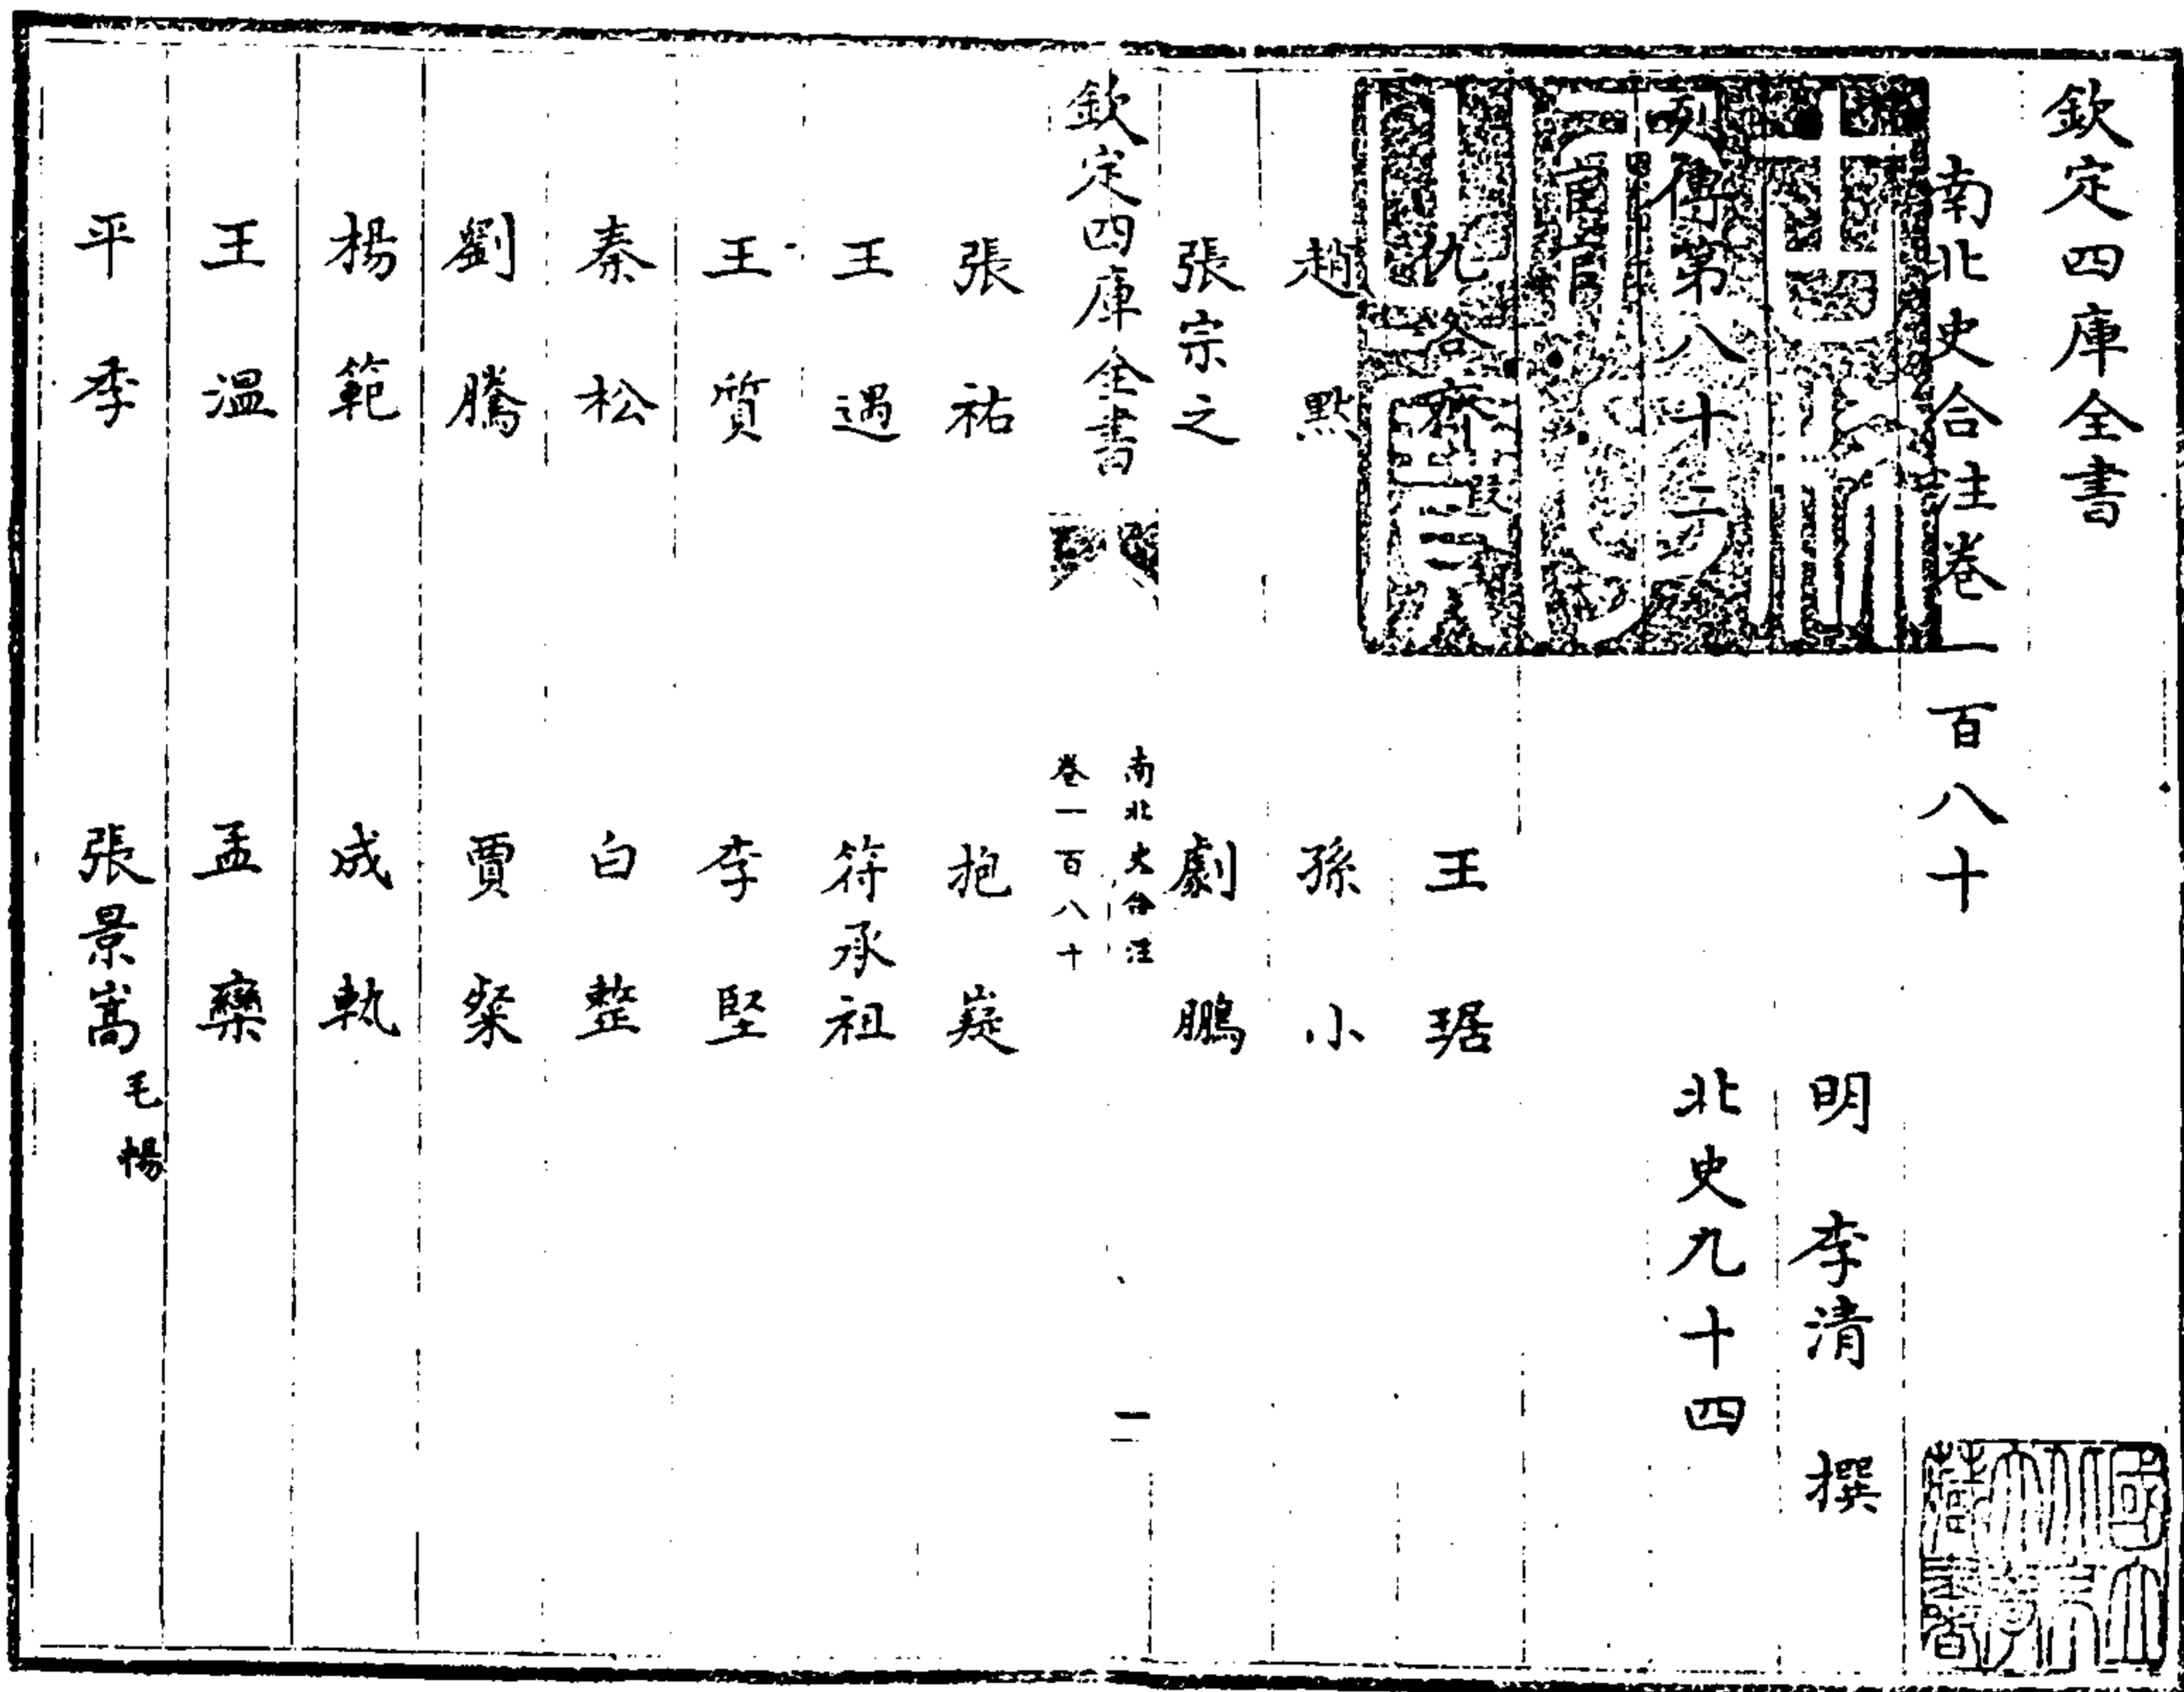 欽定四庫全書
南北史合注卷一百八十
明 李清 撰
列傳第八十二 北史九十四
宦官
仇洛齊 段 王琚
趙黙 孫小
張宗之 劇鵬
欽定四庫全書 南北史合注 卷一百八十 一
張祐 抱嶷
王遇 符承祖
王質 李堅
秦松 白整
劉騰 賈粲
楊範 成軌
王溫 孟欒
平季 張景嵩 毛暢